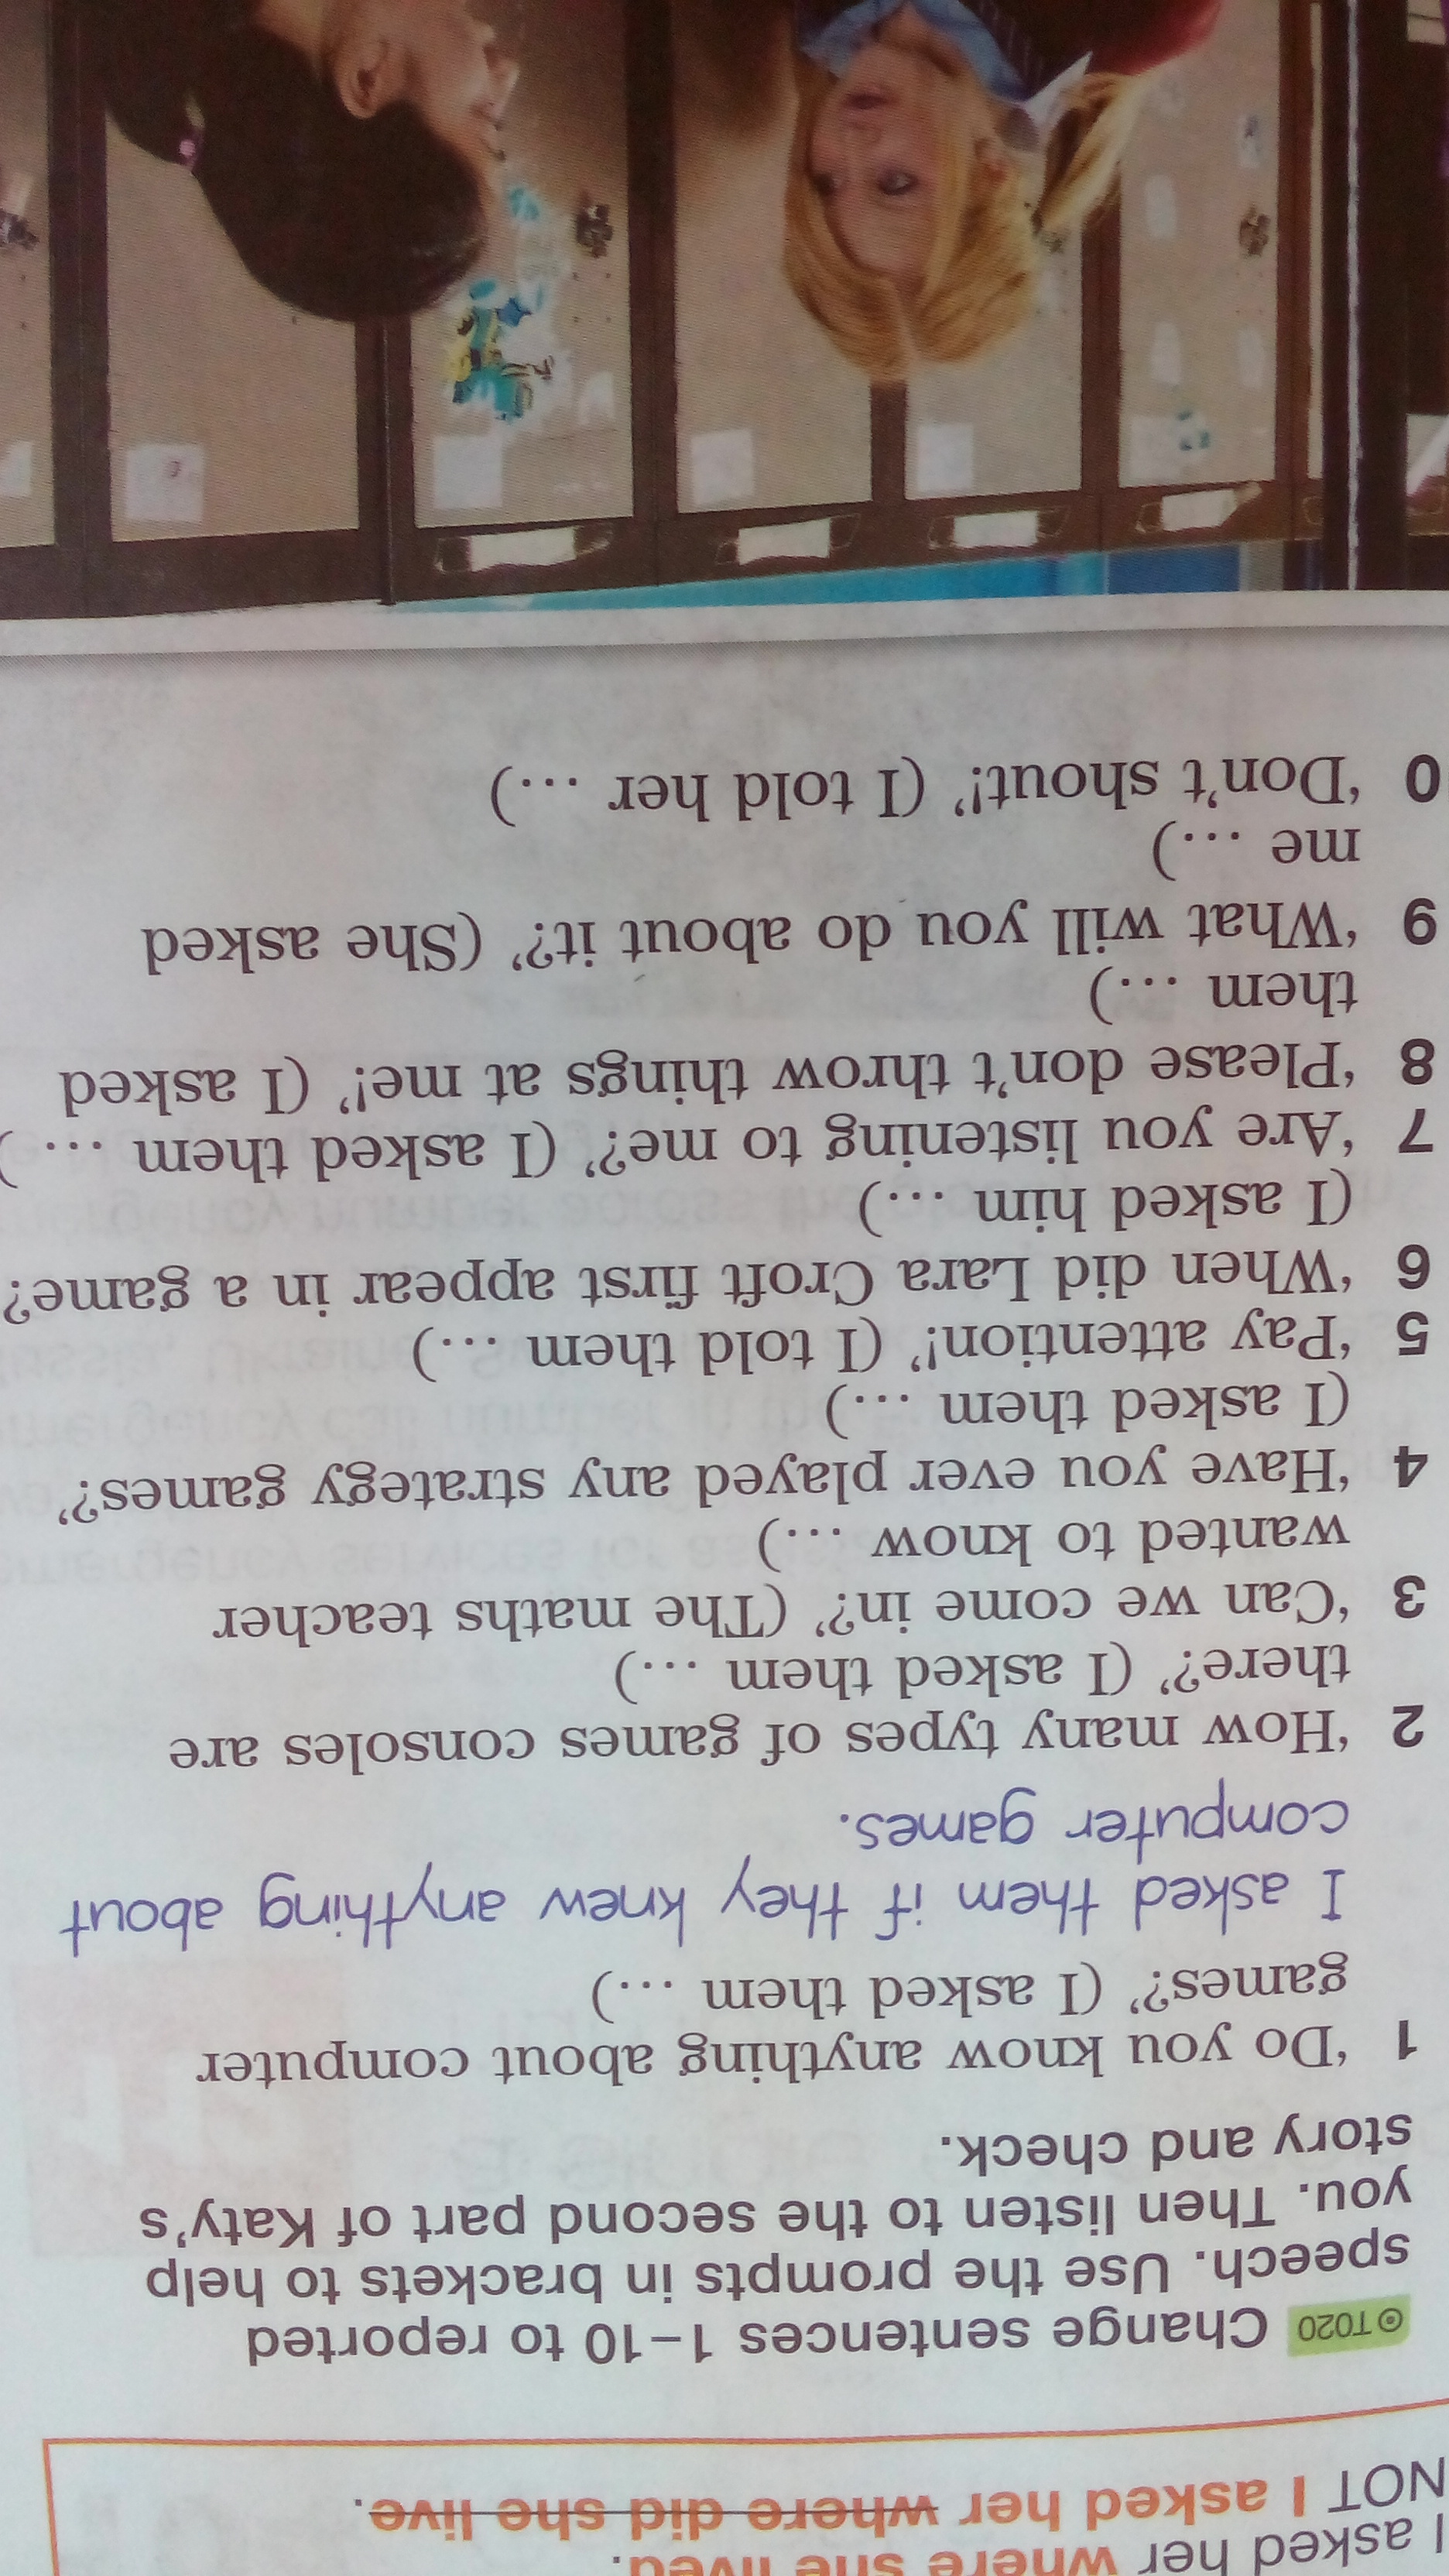 I asked her where she lived.
NOT I asked her where did she live.
T020 Change sentences 1–10 to reported
speech. Use the prompts in brackets to help
you. Then listen to the second part of Katy's
story and check.
1 'Do you know anything about computer
games?' (I asked them …)
I asked them if they knew anything about
computer games.
2 'How many types of games consoles are
there?' (I asked them …)
3 'Can we come in?' (The maths teacher
wanted to know …)
4 'Have you ever played any strategy games?'
(I asked them …)
5 'Pay attention!' (I told them …)
6 'When did Lara Croft first appear in a game?
(I asked him …)
7 'Are you listening to me?' (I asked them …)
8 'Please don't throw things at me!' (I asked
them …)
9 'What will you do about it?' (She asked
me …)
0 'Don't shout!' (I told her …)